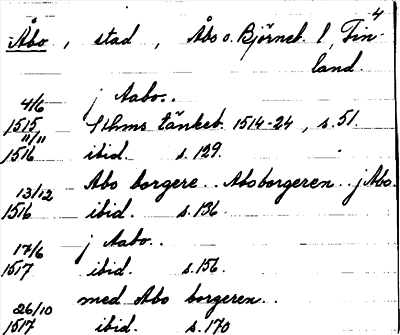 4
Åbo, stad, Åbo o. Björneb. l, Fin-
land.
4/6 j Aabo..
1515 Sthms tänkeb. 1514-24, s. 51.
11/11
1516 ibid. s. 129.
13/12 Abo borgere.. Aboborgeren.. j Abo.
1516 ibid. s. 136.
17/6 j Aabo..
1517 ibid. s. 156.
26/10 med Abo borgeren..
1517 ibid. s. 170